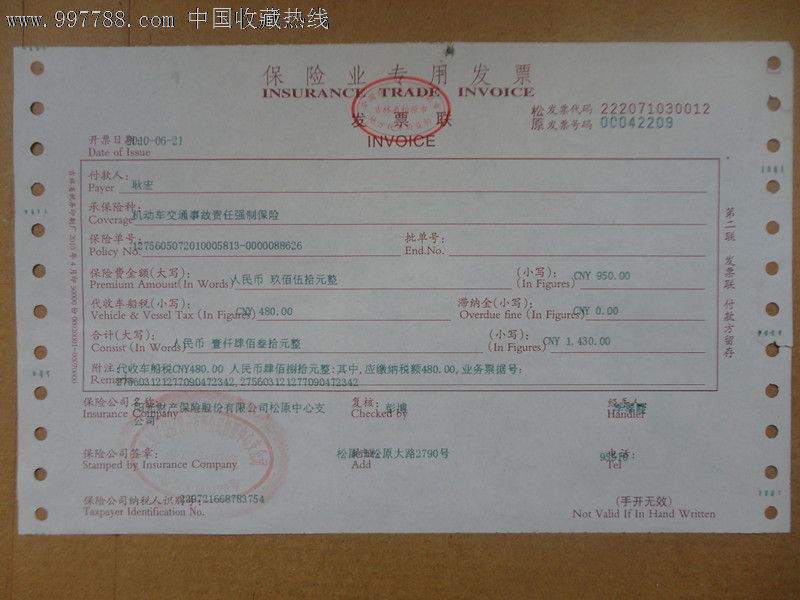 www.997788.com 中国收藏热线
保险业专用发票
INSURANCE TRADE INVOICE
发票联
INVOICE
松 发票代码 222071030012
原 发票号码 00042209
开票日期 2010-06-21
Date of Issue
付款人：
Payer 耿宏
承保险种：
Coverage 机动车交通事故责任强制保险
保险单号： 批单号：
Policy No. 1275605072010005813-0000088626 End.No.
保险费金额(大写)： 人民币 玖佰伍拾元整 (小写)： CNY 950.00
Premium Amount(In Words) (In Figures)
代收车船税(小写)： 滞纳金(小写)：
Vehicle & Vessel Tax (In Figures) CNY 480.00 Overdue fine (In Figures) CNY 0.00
合计(大写)： (小写)：
Consist(In Words) 人民币 壹仟肆佰叁拾元整 (In Figures) CNY 1,430.00
附注： 代收车船税CNY480.00 人民币肆佰捌拾元整;其中,应缴纳税额480.00,业务票据号:
Remarks 275603121277090472342,275603121277090472342
保险公司名称： 复核： 经手人：
Insurance Company 阳光财产保险股份有限公司松原中心支公司 Checked by 彭博 Handler
保险公司签章： 松原市松原大路2790号 电话：
Stamped by Insurance Company Add Tel 95510
保险公司纳税人识别号： 220721668783754 (手开无效)
Taxpayer Identification No. Not Valid If In Hand Written
第二联 发票联 付款方留存